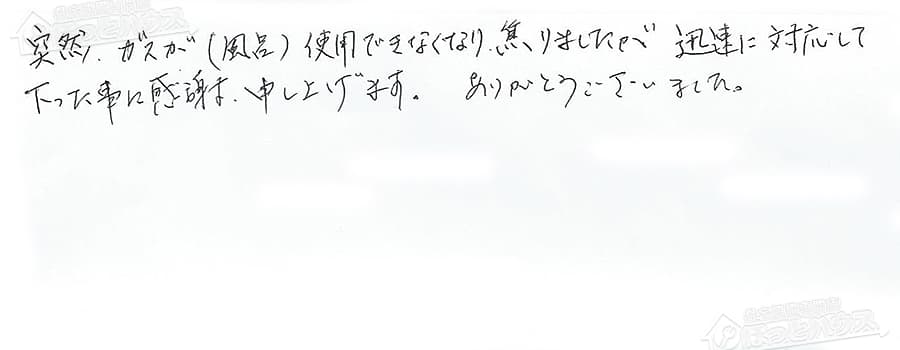 突然、ガスが(風呂)使用できなくなり、焦りましたが 迅速に対応して
下った事に感謝は、申し上げます。 ありがとうございました。